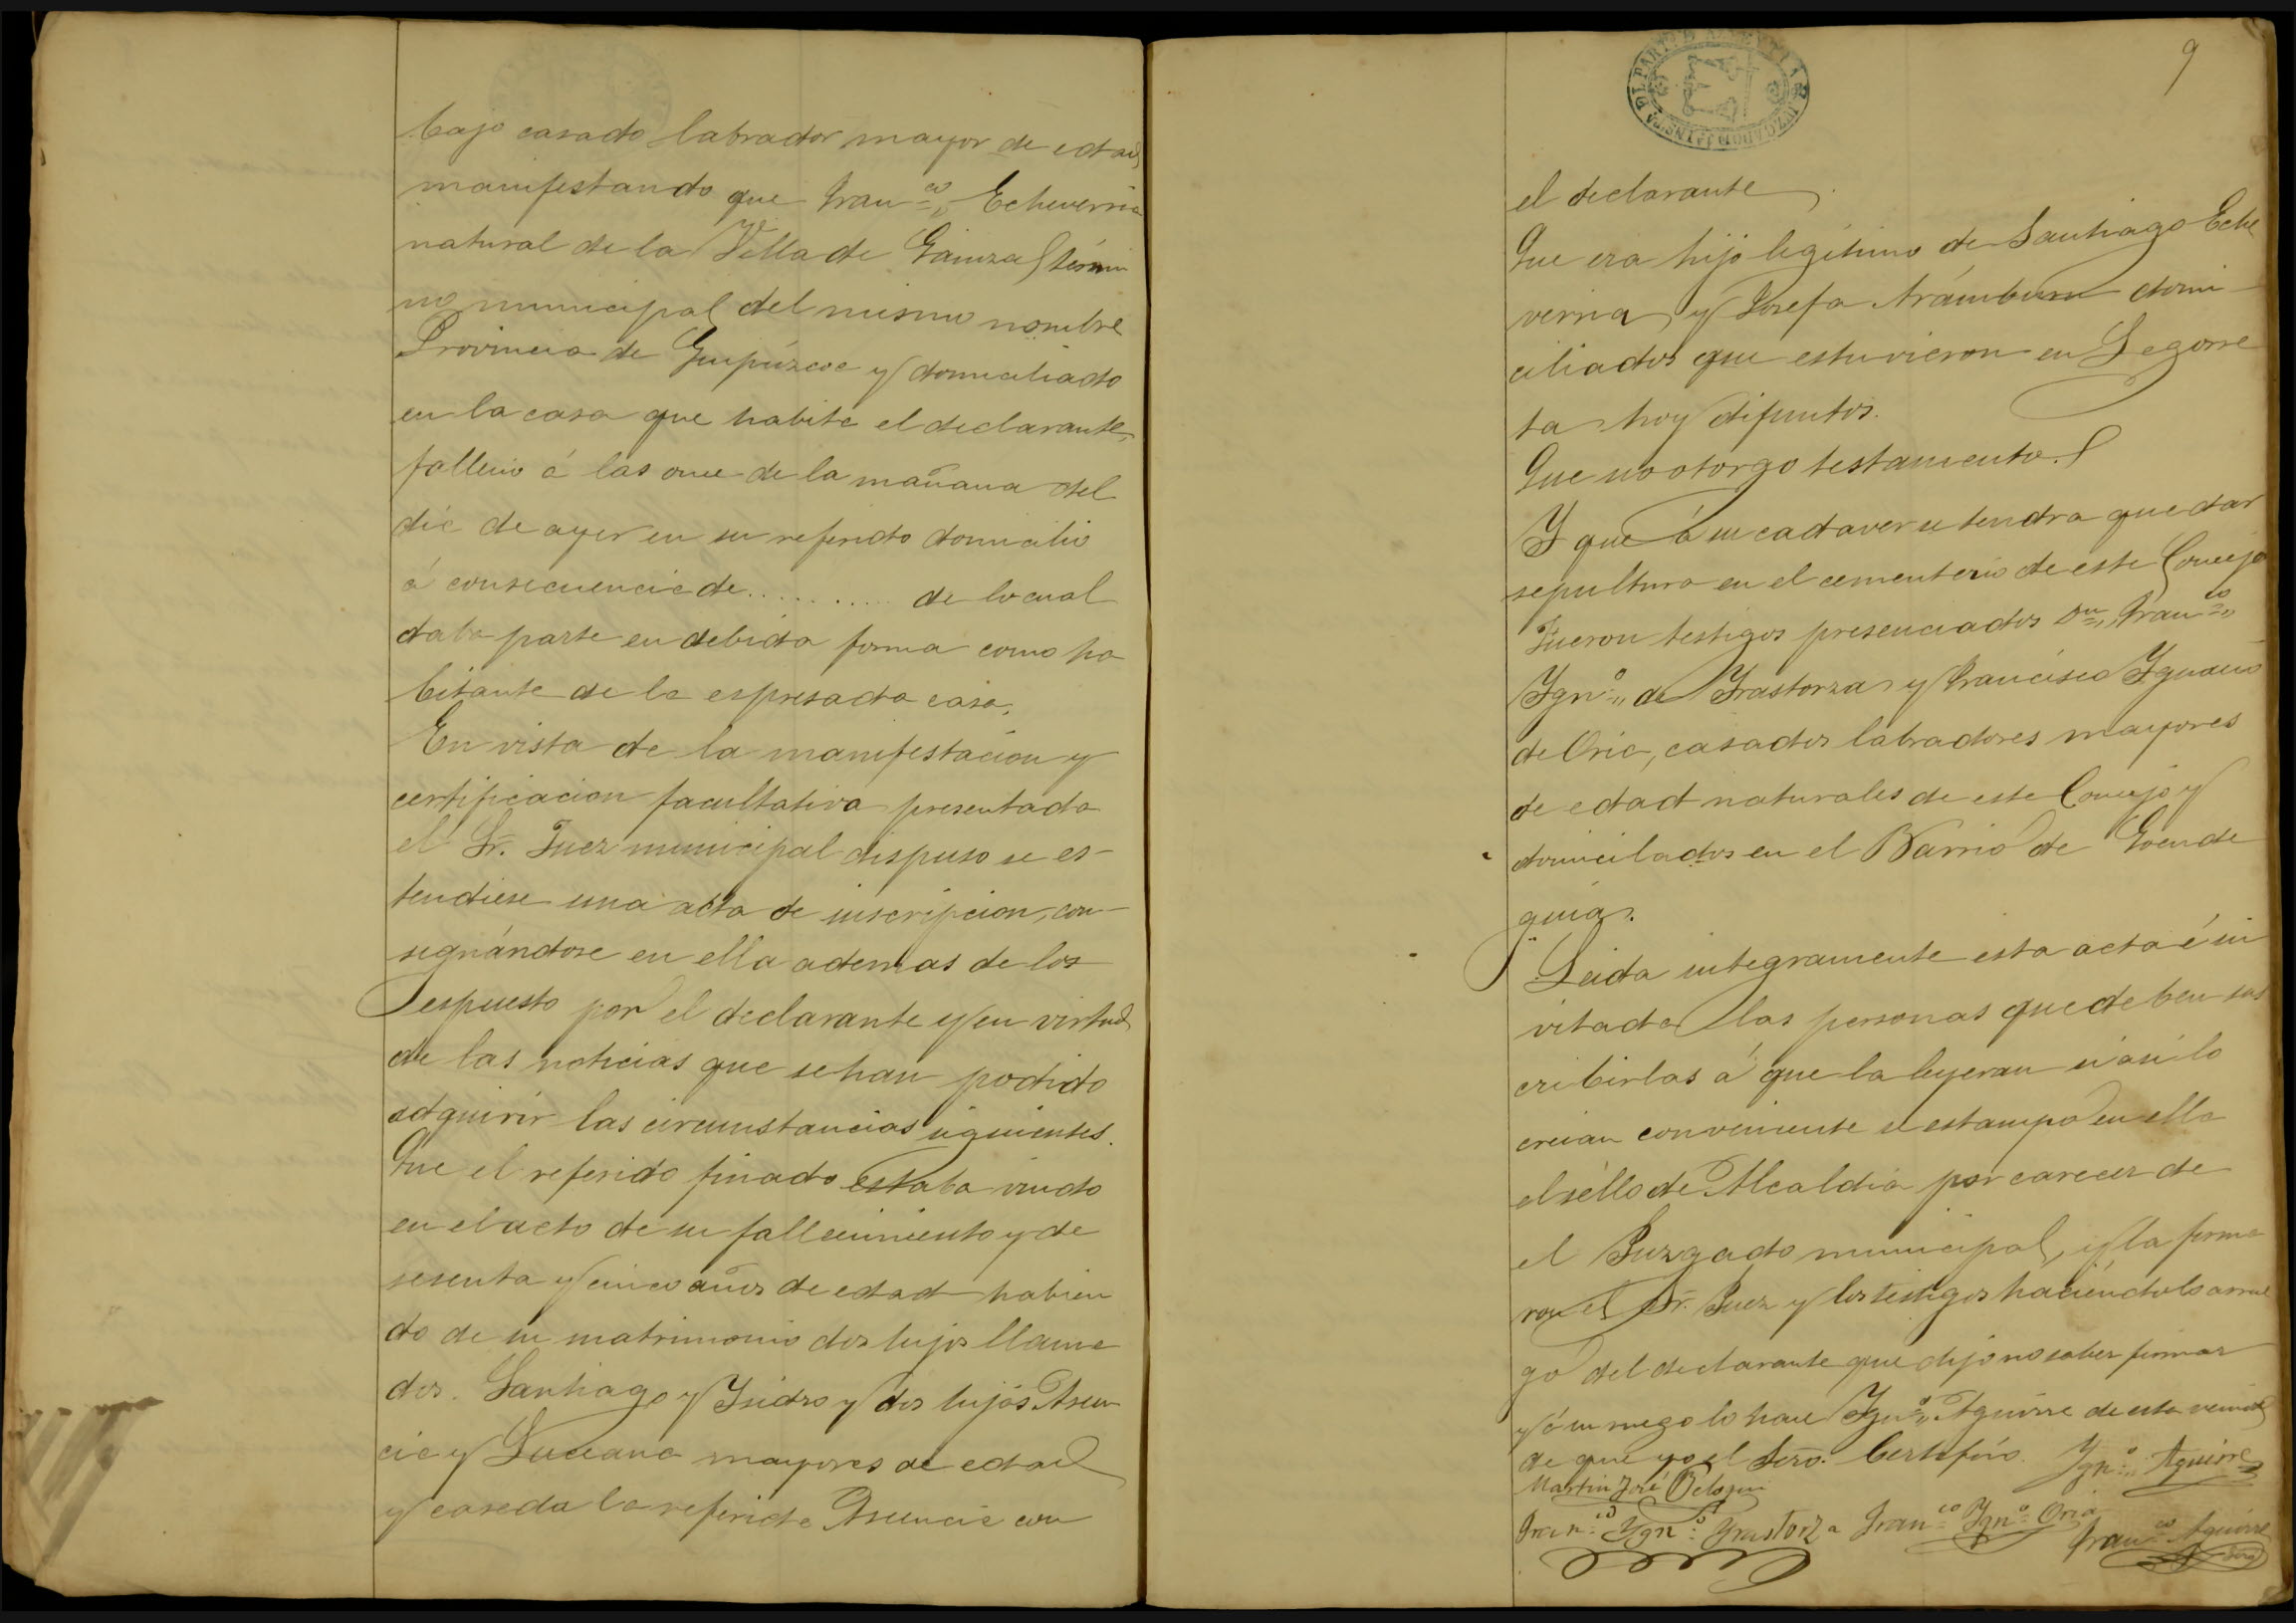 bajo casado labrador mayor de edad
manifestando que Fran.co Echeverria
natural de la Villa de Gainza térmi
no municipal del mismo nombre
Provincia de Guipúzcoa y domiciliado
en la casa que habita el declarante,
falleció á las once de la mañana del
dia de ayer en su referido domicilio
á consecuencia de........... de lo cual
daba parte en debida forma como ha
bitante de la espresada casa.
En vista de la manifestacion y
certificacion facultativa presentada
el Sr. Juez municipal dispuso se es-
tendiese una acta de inscripcion, con-
signándose en ella ademas de los
espuesto por el declarante y en virtud
de las noticias que se han podido
adquirir las circunstancias siguientes.
Que el referido finado estaba viudo
en el acto de su fallecimiento y de
sesenta y cinco años de edad habien
do de su matrimonio dos hijos llama
dos. Santiago y Isidro y dos hijas Asun
cia y Luciana mayores de edad
y casada la referida Asuncia con
9
el declarante
Que era hijo legítimo de Santiago Eche
verria y Josefa Arámburu domi-
ciliados que estuvieron en Legorre
ta hoy difuntos.
Que no otorgo testamento.
Y que á su cadaver se tendra que dar
sepultura en el cementerio de este Concejo
Fueron testigos presenciados Dn Fran.co
Ygn.o de Yrastorza y Francisco Ygnacio
de Oria, casados labradores mayores
de edad naturales de este Concejo y
domicilados en el Barrio de Goende
guia.
Leida integramente esta acta é in
vitada las personas que deben sus
cribirlas á que la leyeran si asi lo
creian conveniente se estampó en ella
el sello de Alcaldia por carecer de
el Juzgado municipal, y la firma
ron el Sr. Juez y los testigos haciéndolo arrue
gó del declarante que dijo no saber firmar
y á su ruego lo hace Ygn.o Aguirre de esta vecindad
de que yo el Srio. Certifico. Ygn.o Aguirre
Martin José
Fran.co Ygn.o Yrastorza Fran.co Ygn.o Oria
Fran.co Aguirre